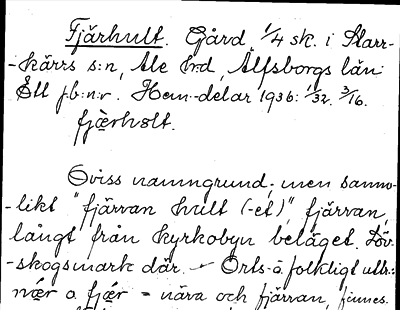 Fjärhult. Gård, 1/4 sk. i Starr-
-kärrs s:n, Ale h:d, Älfsborgs län
Ett j-b:n:r. Hem.-delar 1936: 1/32. 3/16.
fjærhɷlt.
Oviss namngrund, men sanno-
-likt "fjärran hult (-et)", fjärran,
långt från kyrkobyn beläget. Löv-
-skogsmark där. - Orts- o. folkligt uttr.:
nǽr o. fjǽr = nära och fjärran, finnes.